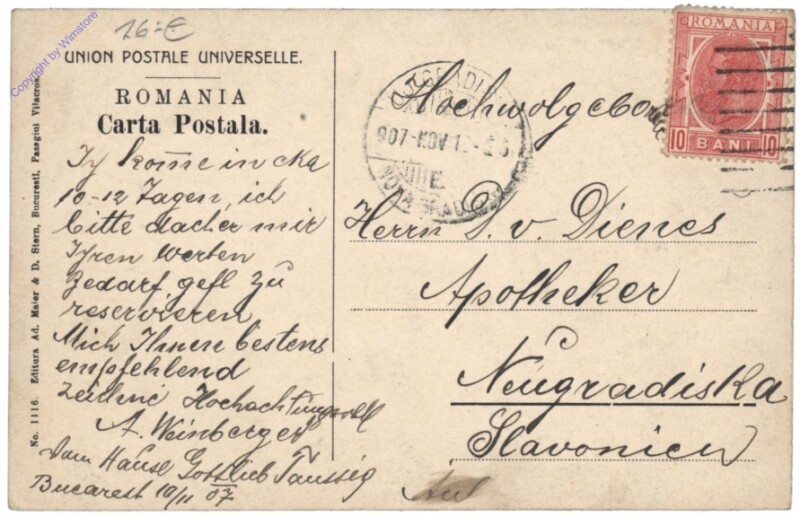 Copyright by Wimstore
16-€
UNION POSTALE UNIVERSELLE.
ROMANIA
Carta Postala.
Iy kome in cka
10-12 Tagen, ich
bitte dacher mir
Iyren werten
Bedarf gefl zu
reservieren
Mich Ihnen bestens
empfehlend
zeichne Hochachtungsvoll
A. Weinberger
Vom Hause Gottlieb Taussig
Bucarest 10/11 07
No. 1116. Editura Ad. Maier & D. Stern, Bucuresti, Pasagiul Vilacros.
907-NOV 1
ROMANIA
10 BANI 10
Hochwolgebor
Herrn S. v. Dienes
Apotheker
Neugradiska
Slavonien